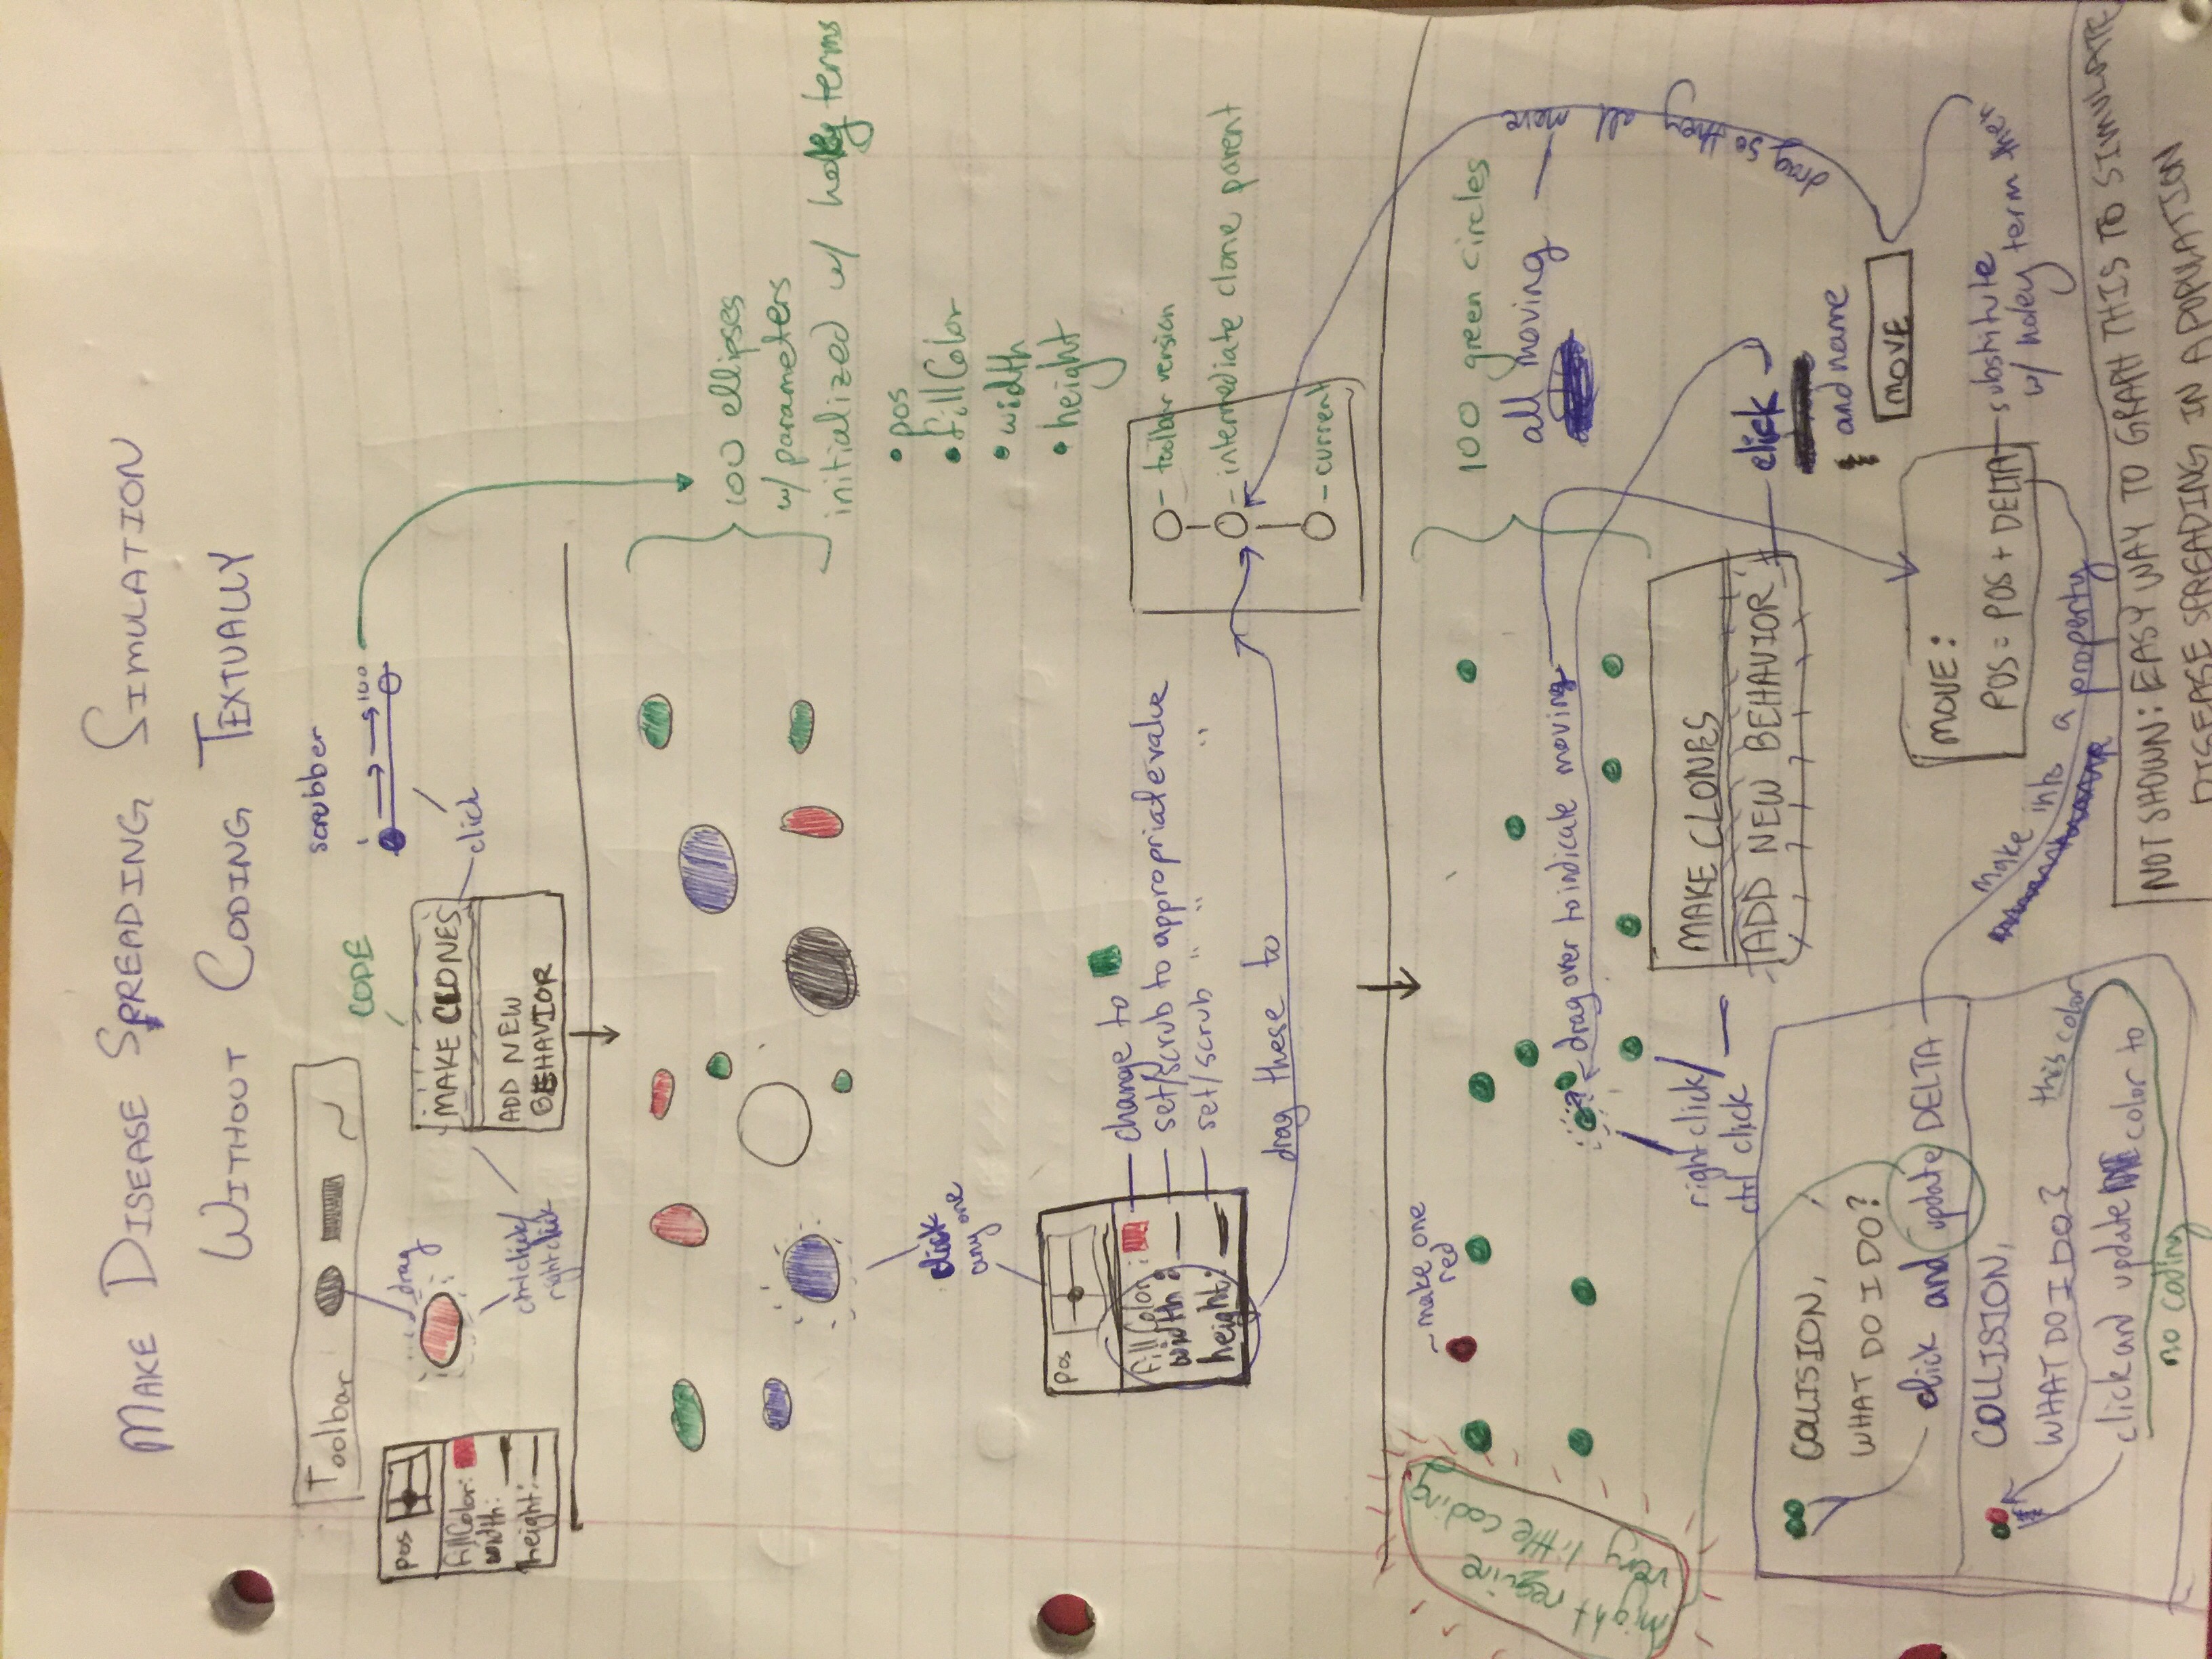 MAKE DISEASE SPREADING SIMULATION
WITHOUT CODING TEXTUALLY
Toolbar
drag
CODE
scrubber
1
100
pos
fillColor:
width:
height:
ctrl click/
right click
MAKE CLONES
ADD NEW
BEHAVIOR
click
100 ellipses
w/ parameters
initialized w/ holey terms
• pos
• fillColor
• width
• height
click
any
one
pos
fillColor:
width:
height:
change to
set/scrub to appropriate value
set/scrub " " "
drag these to
toolbar version
intermediate clone parent
current
make one
red
100 green circles
all moving
drag so they all move
drag over to indicate moving
right click/
ctrl click
MAKE CLONES
ADD NEW BEHAVIOR
click
and name
MOVE
might require
very little coding
MOVE:
POS = POS + DELTA
substitute
w/ holey term
make into a property
COLLISION,
WHAT DO I DO?
click and update DELTA
COLLISION,
WHAT DO I DO?
this color
click and update color to
no coding
NOT SHOWN: EASY WAY TO GRAPH THIS TO SIMULATE
DISEASE SPREADING IN A POPULATION